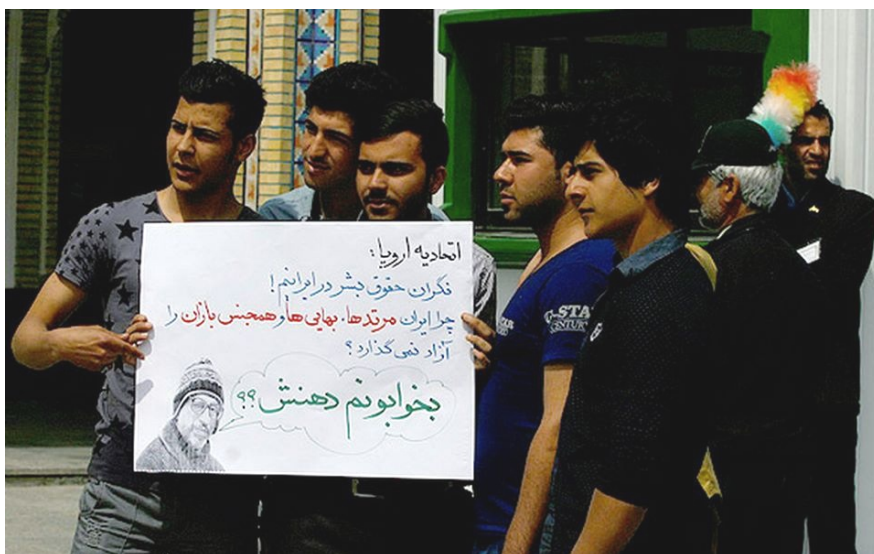 اتحادیه اروپا:
نگران حقوق بشر در ایرانیم!
چرا ایران مرتدها، بهایی ها و همجنس بازان را
آزاد نمی گذارد؟
بخوابونم دهنش؟؟
-STA
CENTUR